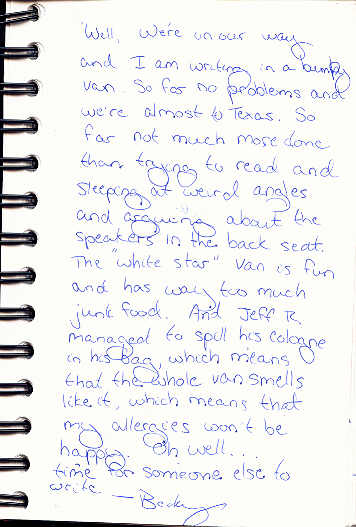 Well, we're on our way
and I am writing in a bumpy
van. So far no problems and
we're almost to Texas. So
far not much more done
than trying to read and
sleeping at weird angles
and arguing about the
speakers in the back seat.
The "white star" van is fun
and has way too much
junk food. And Jeff R.
managed to spill his cologne
in his bag, which means
that the whole van smells
like it, which means that
my allergies won't be
happy. Oh well...
time for someone else to
write. — Becky